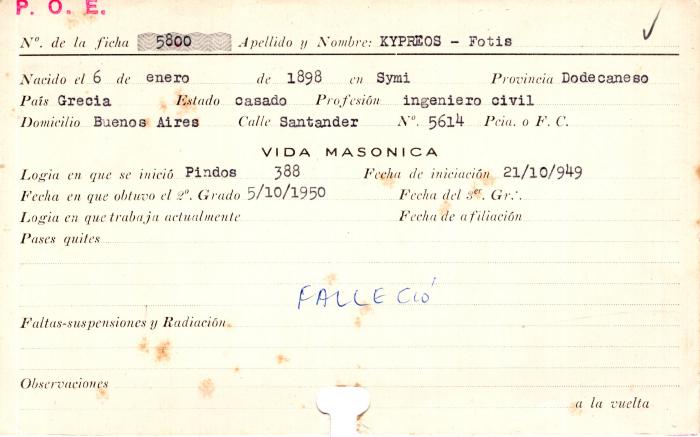 P. O. E.
Nº. de la ficha 5800 Apellido y Nombre: KYPREOS - Fotis
Nacido el 6 de enero de 1898 en Symi Provincia Dodecaneso
País Grecia Estado casado Profesión ingeniero civil
Domicilio Buenos Aires Calle Santander Nº. 5614 Pcia. o F. C.
VIDA MASONICA
Logia en que se inició Pindos 388 Fecha de iniciación 21/10/949
Fecha en que obtuvo el 2º. Grado 5/10/1950 Fecha del 3er. Gr∴.
Logia en que trabaja actualmente Fecha de afiliación
Pases quites
FALLECIÓ
Faltas-suspensiones y Radiación
Observaciones
a la vuelta